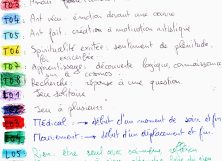 T03
T04 Art vécu : émotion devant une œuvre
T05 Art fait : création à motivation artistique
T06 Spiritualité excitée : sentiment de plénitude,
T07 Apprentissage : découverte logique, connaissance
T08 Recherche : réponse à une question
L01 Jeu solitaire
L02 Jeu à plusieurs
L03 Médical : → début d'un moment de soin et fin
L04 Mouvement : → début d'un déplacement et fin.
L05 Rien, être seul avec